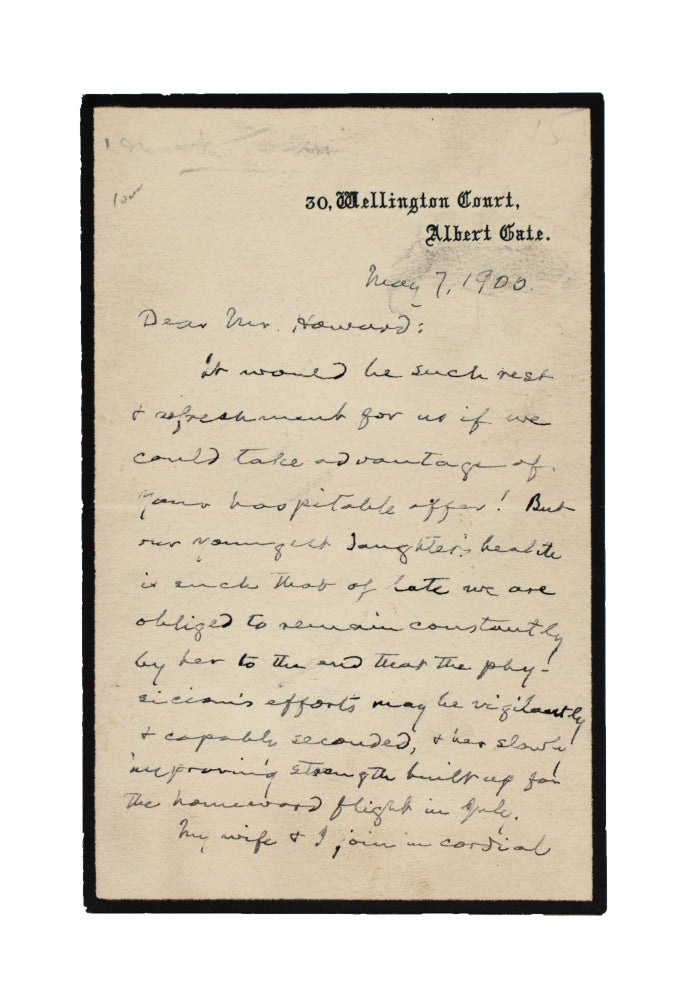 15
30, Wellington Court,
Albert Gate.
May 7, 1900.
Dear Mr. Howard:
It would be such rest
& refreshment for us if we
could take advantage of
your hospitable offer! But
our youngest daughter's health
is such that of late we are
obliged to remain constantly
by her to the end that the phy-
sician's efforts may be vigilantly
& capably seconded, & her slowly
improving strength built up for
the homeward flight in July.
My wife & I join in cordial